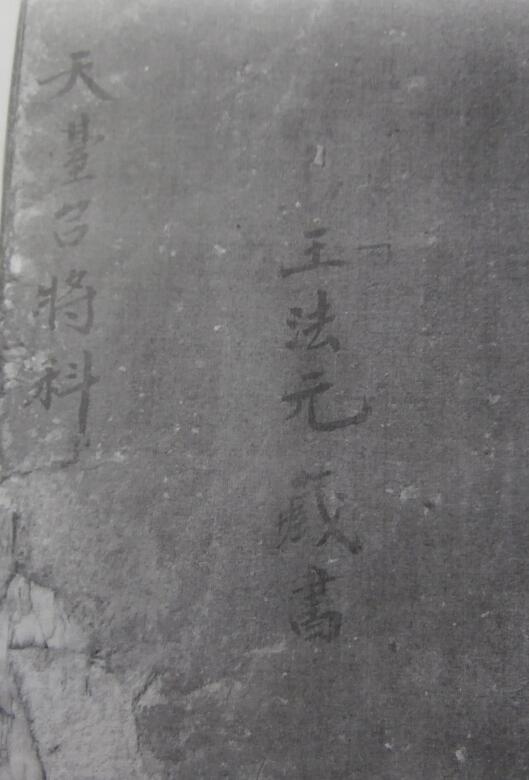 王法元藏書
天臺召將科